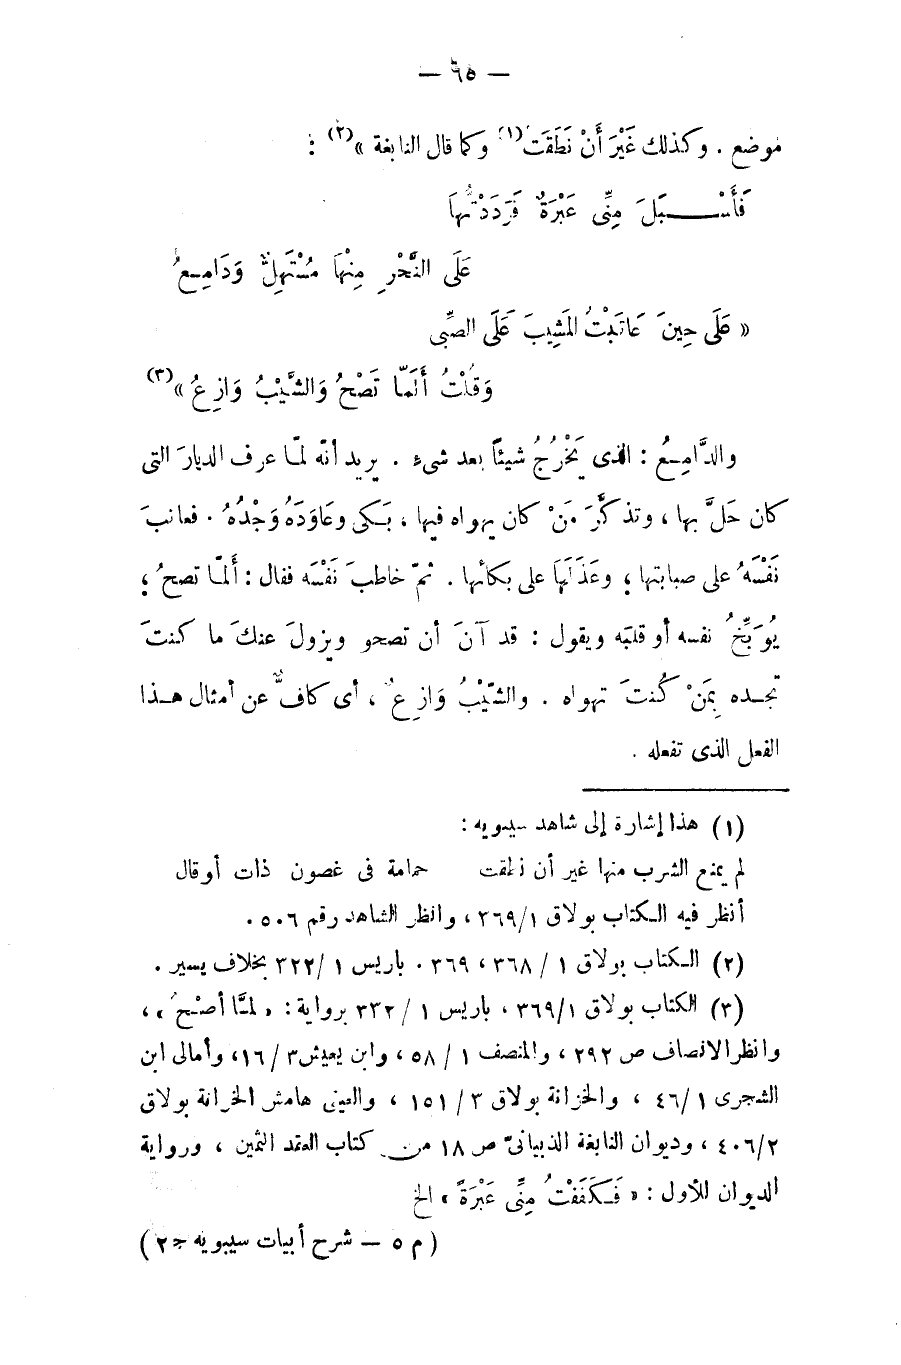 — ٦٥ —
موضع . وكذلك غَيْرَ أَنْ نَطَقَتْ (١) وكما قال النابغة » (٢) :
فَأَسْبَلَ مِنِّى عَبْرَةٌ فَرَدَدْتُها
عَلَى النَّحْرِ مِنْهَا مُسْتَهِلٌّ وَدَامِعُ
« عَلَى حِينَ عَاتَبْتُ المَشِيبَ عَلَى الصِّبى
وَقُلْتُ أَلَمَّا تَصْحُ وَالشَّيْبُ وَازِعُ » (٣)
والدَّامِعُ : الذى يَخْرُجُ شيئاً بعد شىء . يريد أنّه لمّا عرف الديارَ التى
كان حَلَّ بها ، وتذكَّرَ مَنْ كان يهواه فيها ، بَكى وعَاوَدَهُ وَجْدُهُ . فعاتبَ
نَفْسَهُ على صبابتها ، وعَذَلَهَا على بكائها . ثمّ خاطبَ نَفْسَه فقال : أَلمّا تصحُ ؛
يُوَبِّخُ نفسه أو قلبَه ويقول : قد آنَ أن تصحو ويزولَ عنكَ ما كنتَ
تجده بِمَنْ كُنتَ تهواه . والشّيْبُ وَازِعُ ، أى كافٌّ عن أمثال هذا
الفعل الذى تفعله .
(١) هذا إشارة إلى شاهد سيبويه :
لم يمنع الشرب منها غير أن نطقت حمامة فى غصون ذات أوقال
أنظر فيه الكتاب بولاق ١/٣٦٩ ، وانظر الشاهد رقم ٥٠٦ .
(٢) الكتاب بولاق ١ / ٣٦٨ ، ٣٦٩ . باريس ١ /٣٢٢ بخلاف يسير .
(٣) الكتاب بولاق ١/٣٦٩ ، باريس ١ / ٣٣٢ برواية : « لمّا أصْحُ » ،
وانظر الانصاف ص ٢٩٢ ، والمنصف ١ / ٥٨ ، وابن يعيش ٣ / ١٦ ، وأمالى ابن
الشجرى ١ /٤٦ ، والخزانة بولاق ٣ / ١٥١ ، والعينى هامش الخزانة بولاق
٢/ ٤٠٦ ، وديوان النابغة الذبيانىّ ص ١٨ من كتاب العقد الثمين ، ورواية
الديوان للأول : « فَكَفَفْتُ مِنِّى عَبْرَةً » الخ
( م ٥ – شرح أبيات سيبويه جـ ٢ )